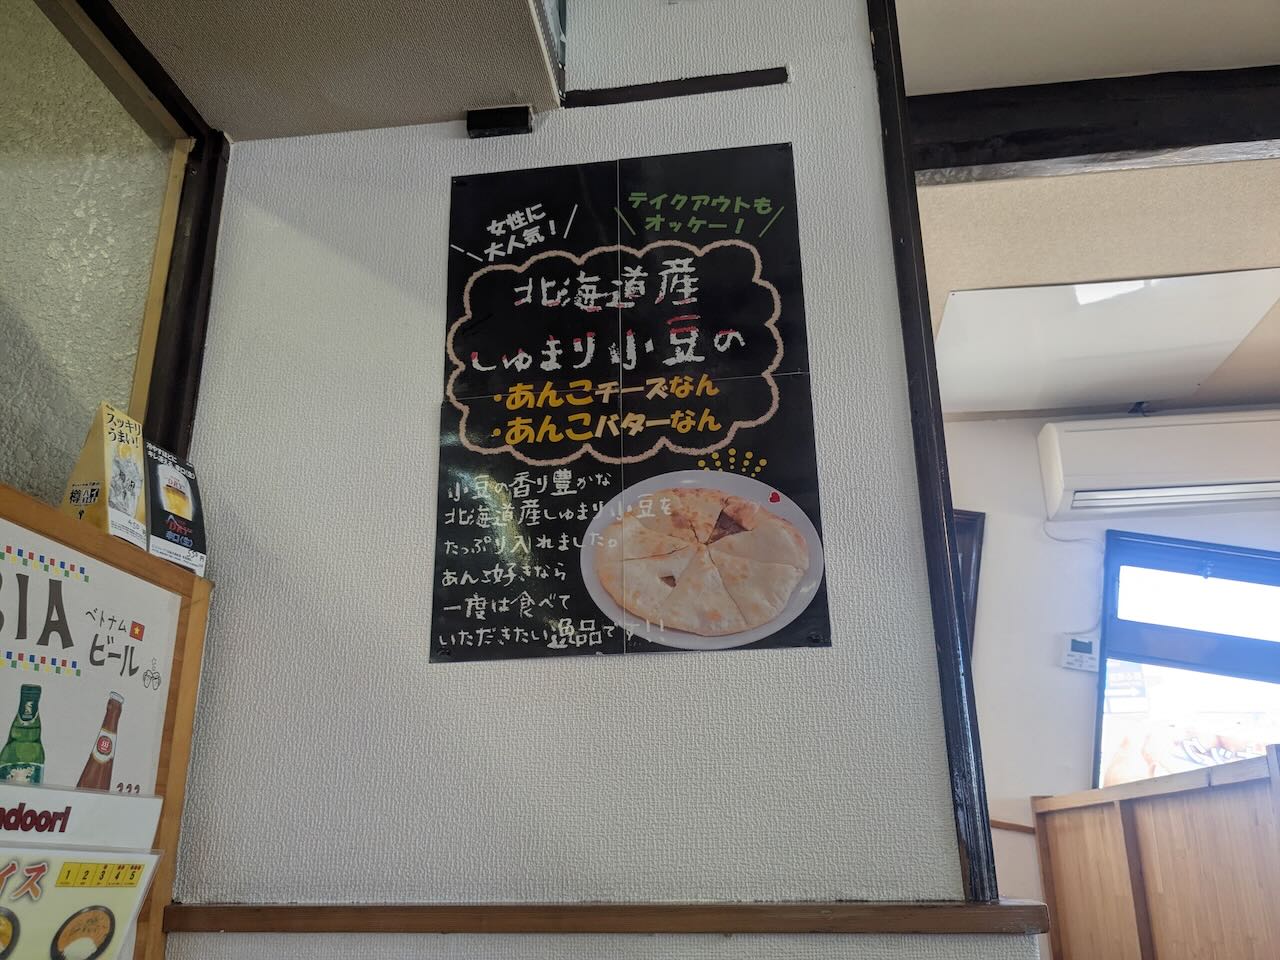 女性に
大人気！
テイクアウトも
オッケー！
北海道産
しゅまり小豆の
・あんこチーズなん
・あんこバターなん
小豆の香り豊かな
北海道産しゅまり小豆を
たっぷり入れました。
あんこ好きなら
一度は食べて
いただきたい逸品です!!
スッキリ
うまい!
樽ハイ
辛口(生)
550円
BIA
ベトナム
ビール
333
ndoori
イス
1 2 3 4 5